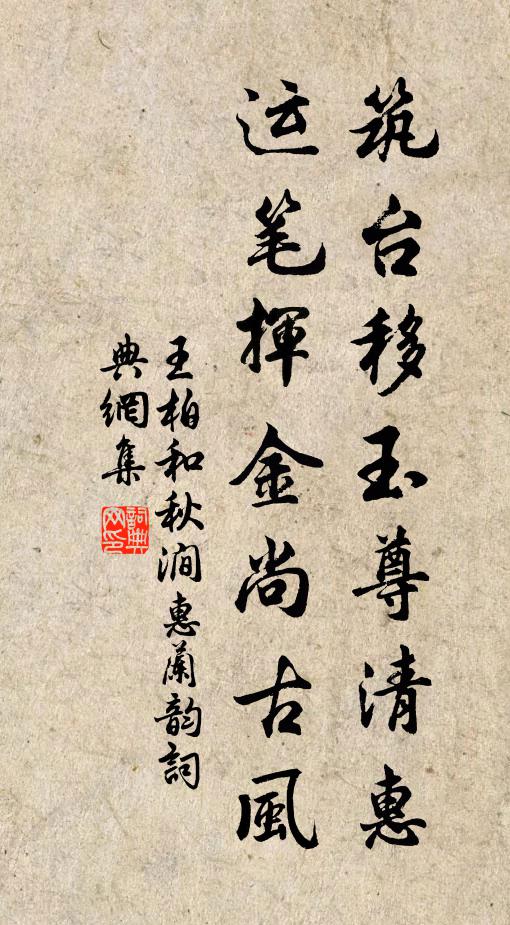 筑台移玉尊清惠
运笔揮金尚古風
王柏和秋澗惠蘭韵詞
典網集
詞典网印